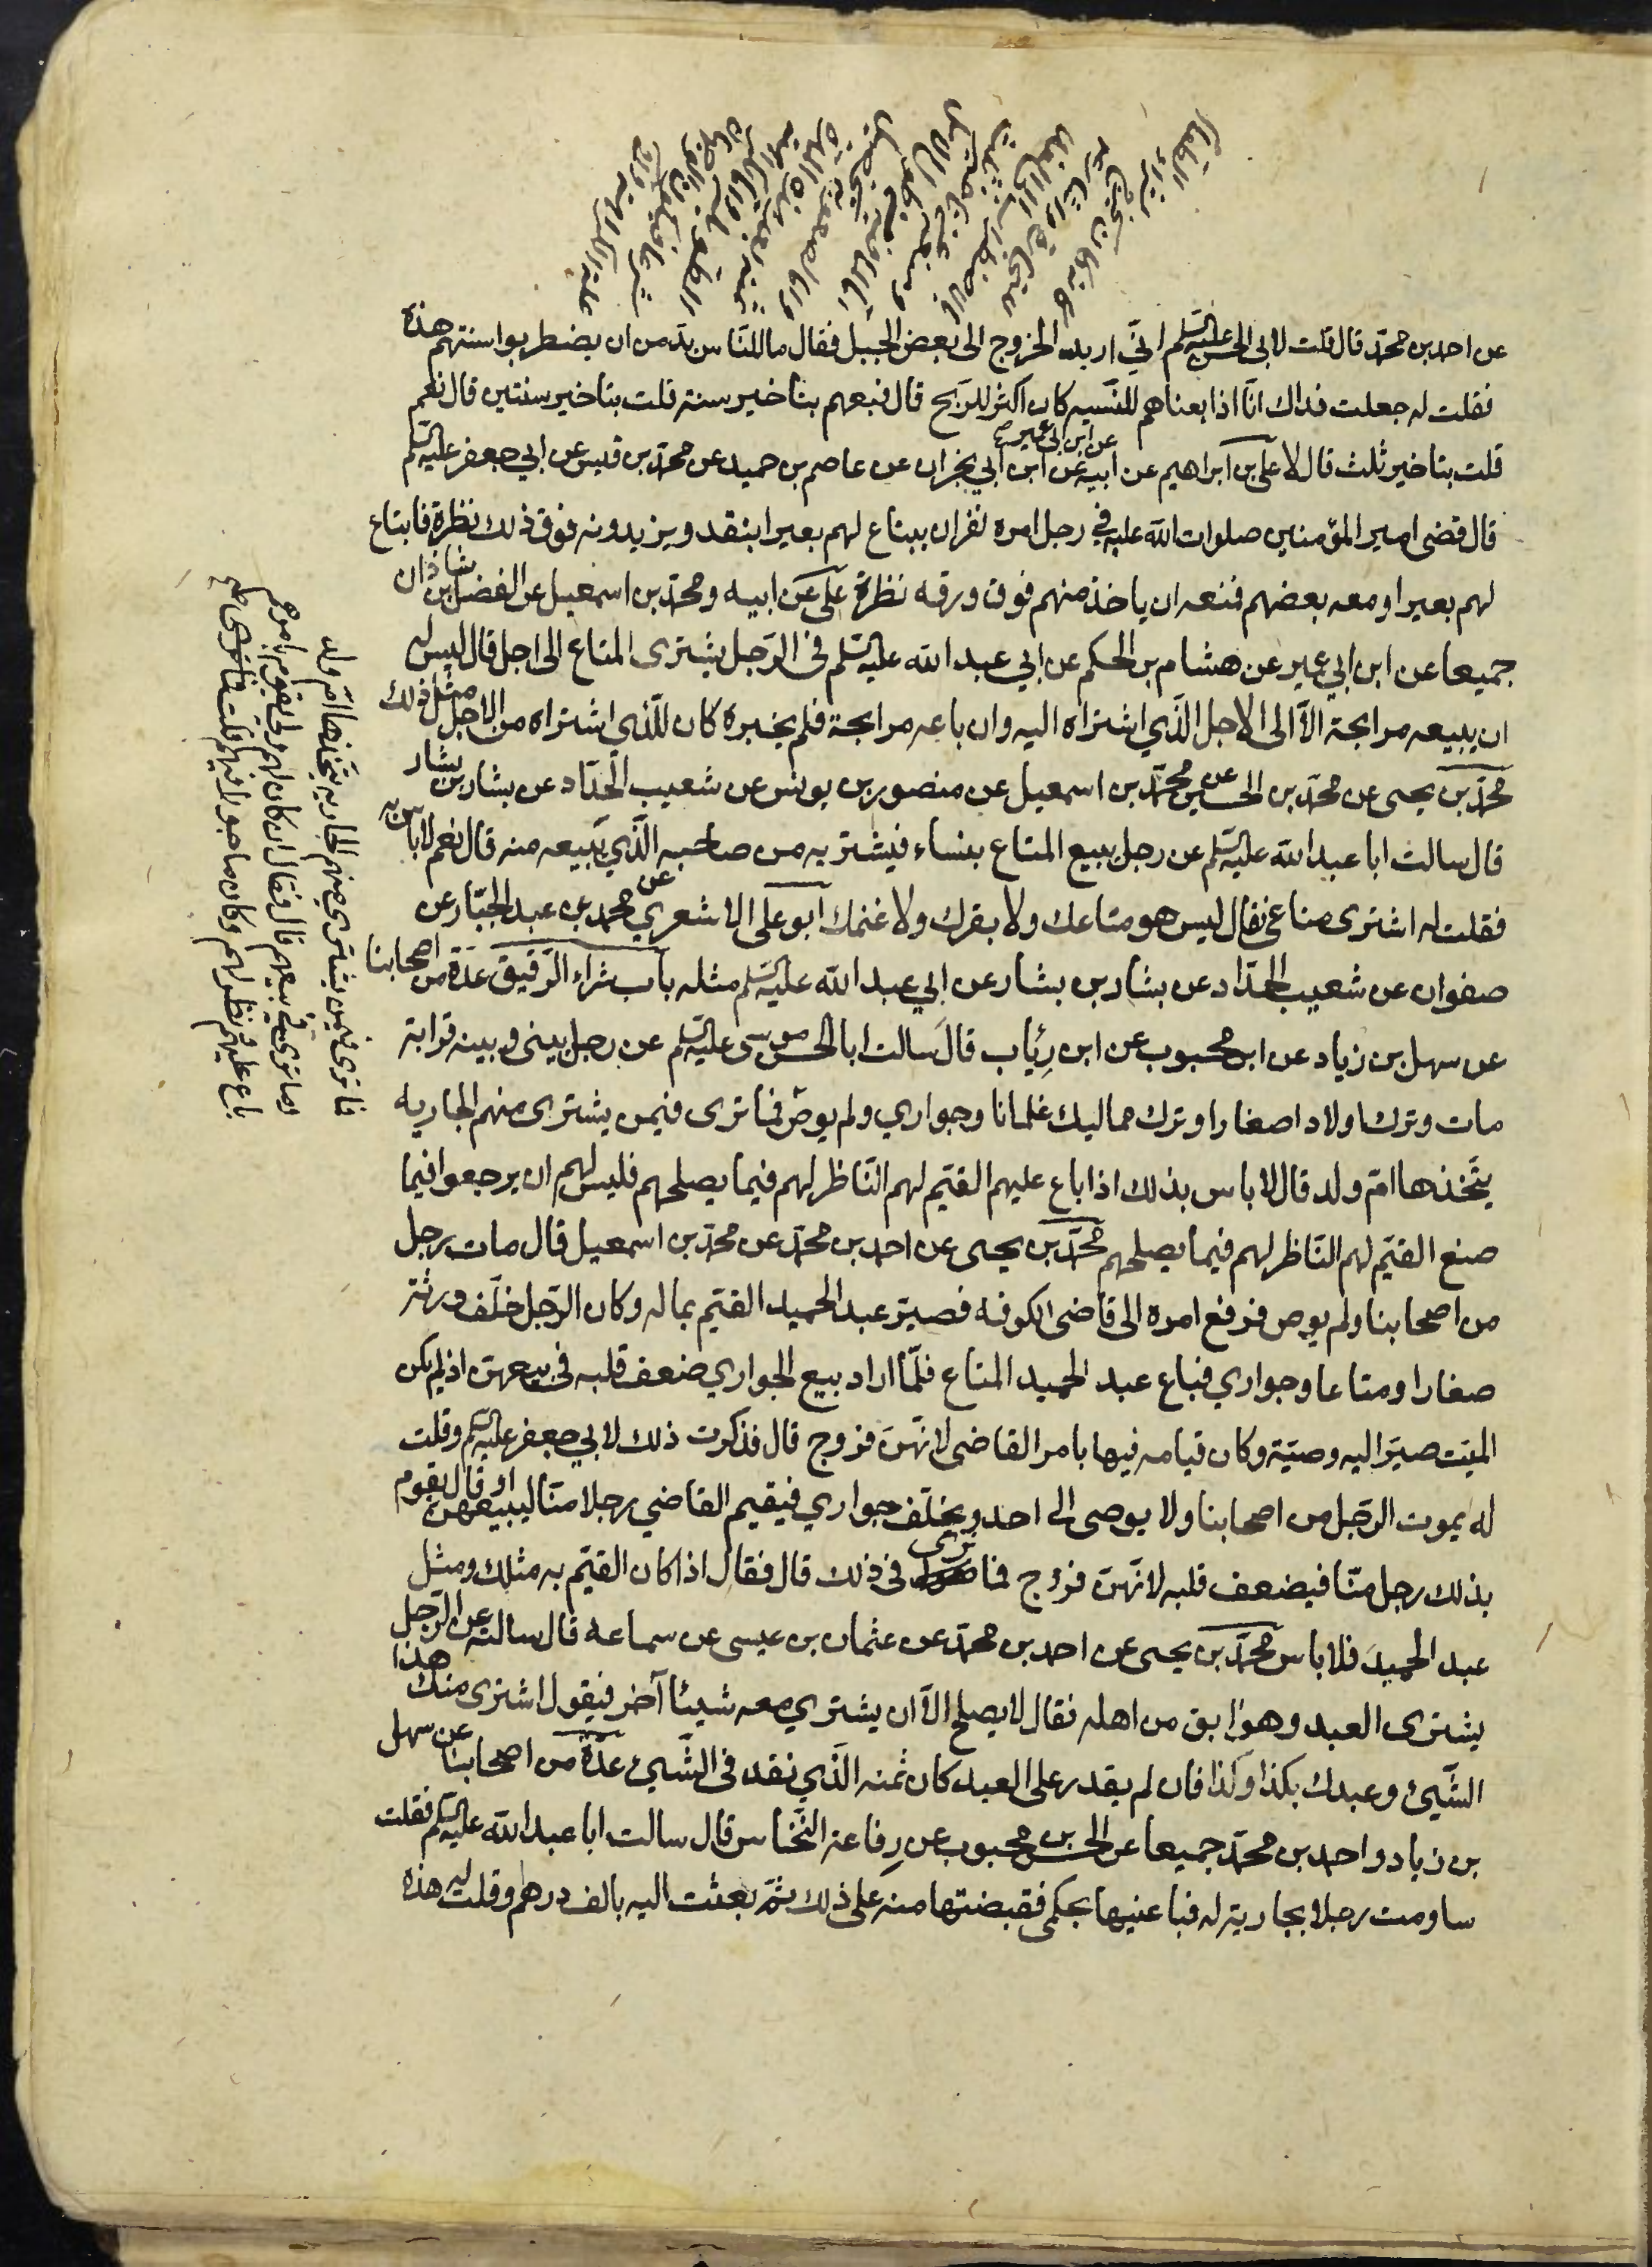 عن احمد بن محمد قال قلت لابى الحسن عليه السلم انّي اريد الخروج الى بعض الجبل فقال ما للنّاس بدّ من ان يضطربوا سنتهم هذه
فقلت له جعلت فداك انّا اذا بعناهم للنّسيه كان اكثر للرّبح قال فبعهم بتاخير سنة قلت بتاخير سنتين قال نعم
قلت بتاخير ثلث قال لا على بن ابراهيم عن ابيه عن ابن ابي عمير عن ابن ابي نجران عن عاصم بن حميد عن محمّد بن قيس عن ابي جعفر عليه السلم
قال قضى امير المؤمنين صلوات الله عليه في رجل امره نفر ان يبتاع لهم بعيرا بنقد ويزيدونه فوق ذلك نظرة فابتاع
لهم بعيرا ومعه بعضهم فمنعه ان ياخذ منهم فوق ورقه نظرة على عن ابيه ومحمّد بن اسمعيل عن الفضل بن شاذان
جميعا عن ابن ابي عمير عن هشام بن الحكم عن ابي عبد الله عليه السلم فى الرّجل يشترى المتاع الى اجل قال ليس له
ان يبيعه مرابحة الاّ الى الاجل الّذي اشتراه اليه وان باعه مرابحة فلم يخبره كان للّذي اشتراه من الاجل مثل ذلك
محمّد بن يحيى عن محمّد بن الحسين عن محمّد بن اسمعيل عن منصور بن يونس عن شعيب الحدّاد عن بشار بن يشار
قال سالت ابا عبد الله عليه السلم عن رجل يبيع المتاع بنساء فيشتريه من صاحبه الّذي يبيعه منه قال نعم لا باس به
فقلت له اشترى متاعى فقال ليس هو متاعك ولا بقرك ولا غنمك ابو على الاشعري عن محمد بن عبد الجبّار عن
صفوان عن شعيب الحدّاد عن بشار بن يشار عن ابي عبد الله عليه السلم مثله باب شراء الرّقيق عدّة من اصحابنا
عن سهل بن زياد عن ابن محبوب عن ابن رِئاب قال سالت ابا الحسن موسى عليه السلم عن رجل بينى وبينه قرابة
مات وترك اولادا صغارا وترك مماليك غلمانا وجواري ولم يوص فما ترى فيمن يشترى منهم الجاريه
يتّخذها امّ ولد قال لا باس بذلك اذا باع عليهم القيّم لهم النّاظر لهم فيما يصلحهم فليس لهم ان يرجعوا فيما
صنع القيّم لهم النّاظر لهم فيما يصلحهم محمّد بن يحيى عن احمد بن محمّد عن محمّد بن اسمعيل قال مات رجل
من اصحابنا ولم يوص فرفع امره الى قاضى الكوفه فصيّر عبد الحميد القيّم بماله وكان الرّجل خلّف ورثة
صغارا ومتاعا وجواري فباع عبد الحميد المتاع فلمّا اراد بيع الجواري ضعف قلبه فى بيعهنّ اذ لم يكن
الميّت صيّر اليه وصيّة وكان قيامه فيها بامر القاضى لانّهنّ فروج قال فذكرت ذلك لابي جعفر عليه السلم وقلت
له يموت الرّجل من اصحابنا ولا يوصى الى احد ويخلّف جواري فيقيم القاضي رجلا منّا ليبيعهنّ او قال يقوم
بذلك رجل منّا فيضعف قلبه لانّهنّ فروج فما ترى فى ذلك قال فقال اذا كان القيّم به مثلك ومثل
عبد الحميد فلا باس محمّد بن يحيى عن احمد بن محمّد عن عثمان بن عيسى عن سماعه قال سالته عن الرّجل
يشترى العبد وهو ابق من اهله فقال لا يصلح الاّ ان يشتري معه شيئا آخر فيقول اشترى منك هذا
الشّيئ وعبدك بكذا وكذا فان لم يقدر على العبد كان ثمنه الّذي نقد فى الشّيئ عدّة من اصحابنا عن سهل
بن زياد واحمد بن محمّد جميعا عن الحسن بن محبوب عن رِفاعة النّخّاس قال سالت ابا عبد الله عليه السلم فقلت
ساومت رجلا بجارية له فباعنيها بحكمى فقبضتها منه على ذلك ثمّ بعثت اليه بالف درهم وقلت له هذه
فما ترى فيمن يشترى منهم الجاريه يتّخذها امّ ولد
وما ترى في بيعهم قال فقال ان كان لهم ولى يقوم بامرهم
باع عليهم ونظر لهم وكان ماجورا فيهم قلت فما ترى